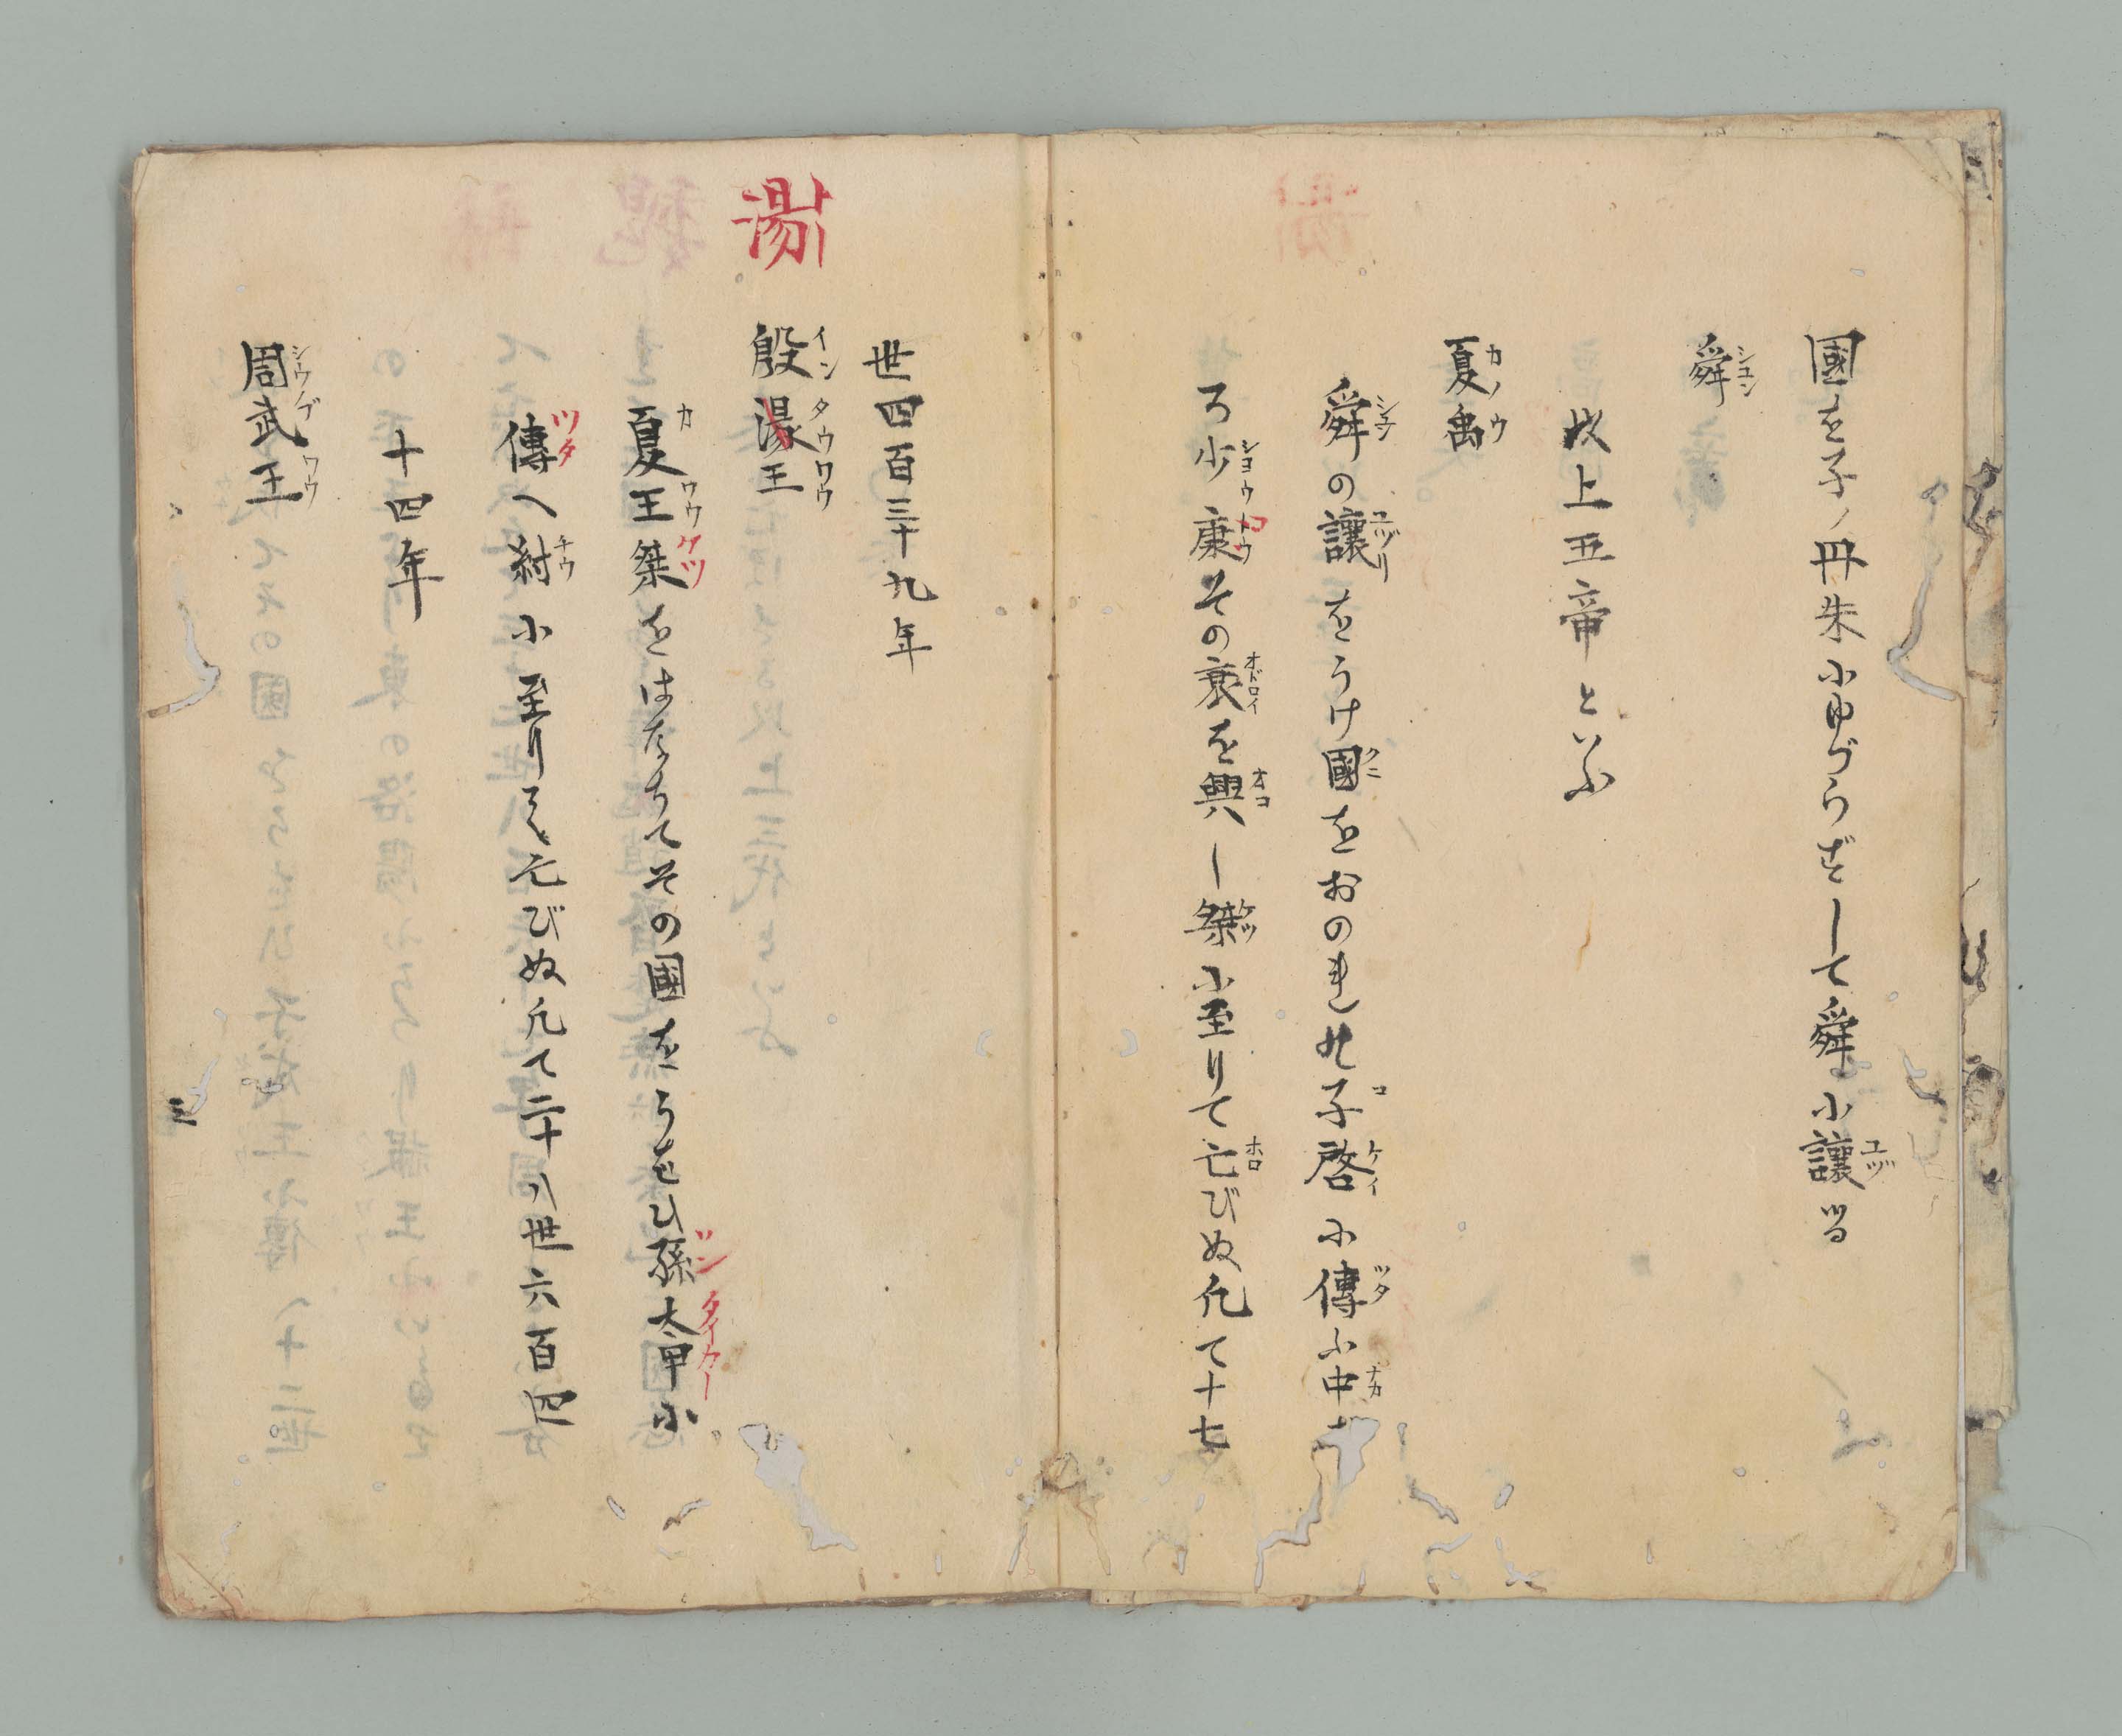 國を子ノ丹朱小ゆづらずして舜小讓る
舜
以上五帝といふ
夏禹
舜の讓をうけ國をおのれが子啓小傳ふ中
ろ少康その衰を興し桀小至りて亡びぬ凡て十七
世四百三十九年
湯
殷湯王
夏王桀をはなちてその國をうばひ孫太甲小
傳へ紂小至りてほろびぬ凡て二十八世六百四
十四年
周武王